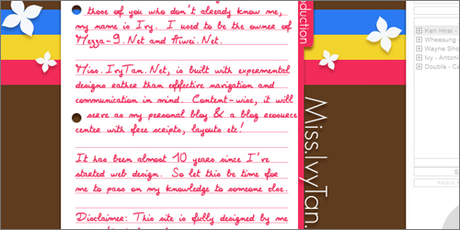 those of you who don't already know me,
my name is Ivy. I used to be the owner of
Mezza-9.Net and Aiwei.Net.
Miss.IvyTan.Net, is built with experimental
designs rather than effective navigation and
communication in mind. Content-wise, it will
serve as my personal blog & a blog resource
center with free scripts, layouts etc!
It has been almost 10 years since I've
started web design. So let this be time for
me to pass on my knowledge to someone else.
Disclaimer: This site is fully designed by me
oduction
Miss.IvyTan.
Ken Hirai -
Wayne
Ivy - Antoni
Double - Ca